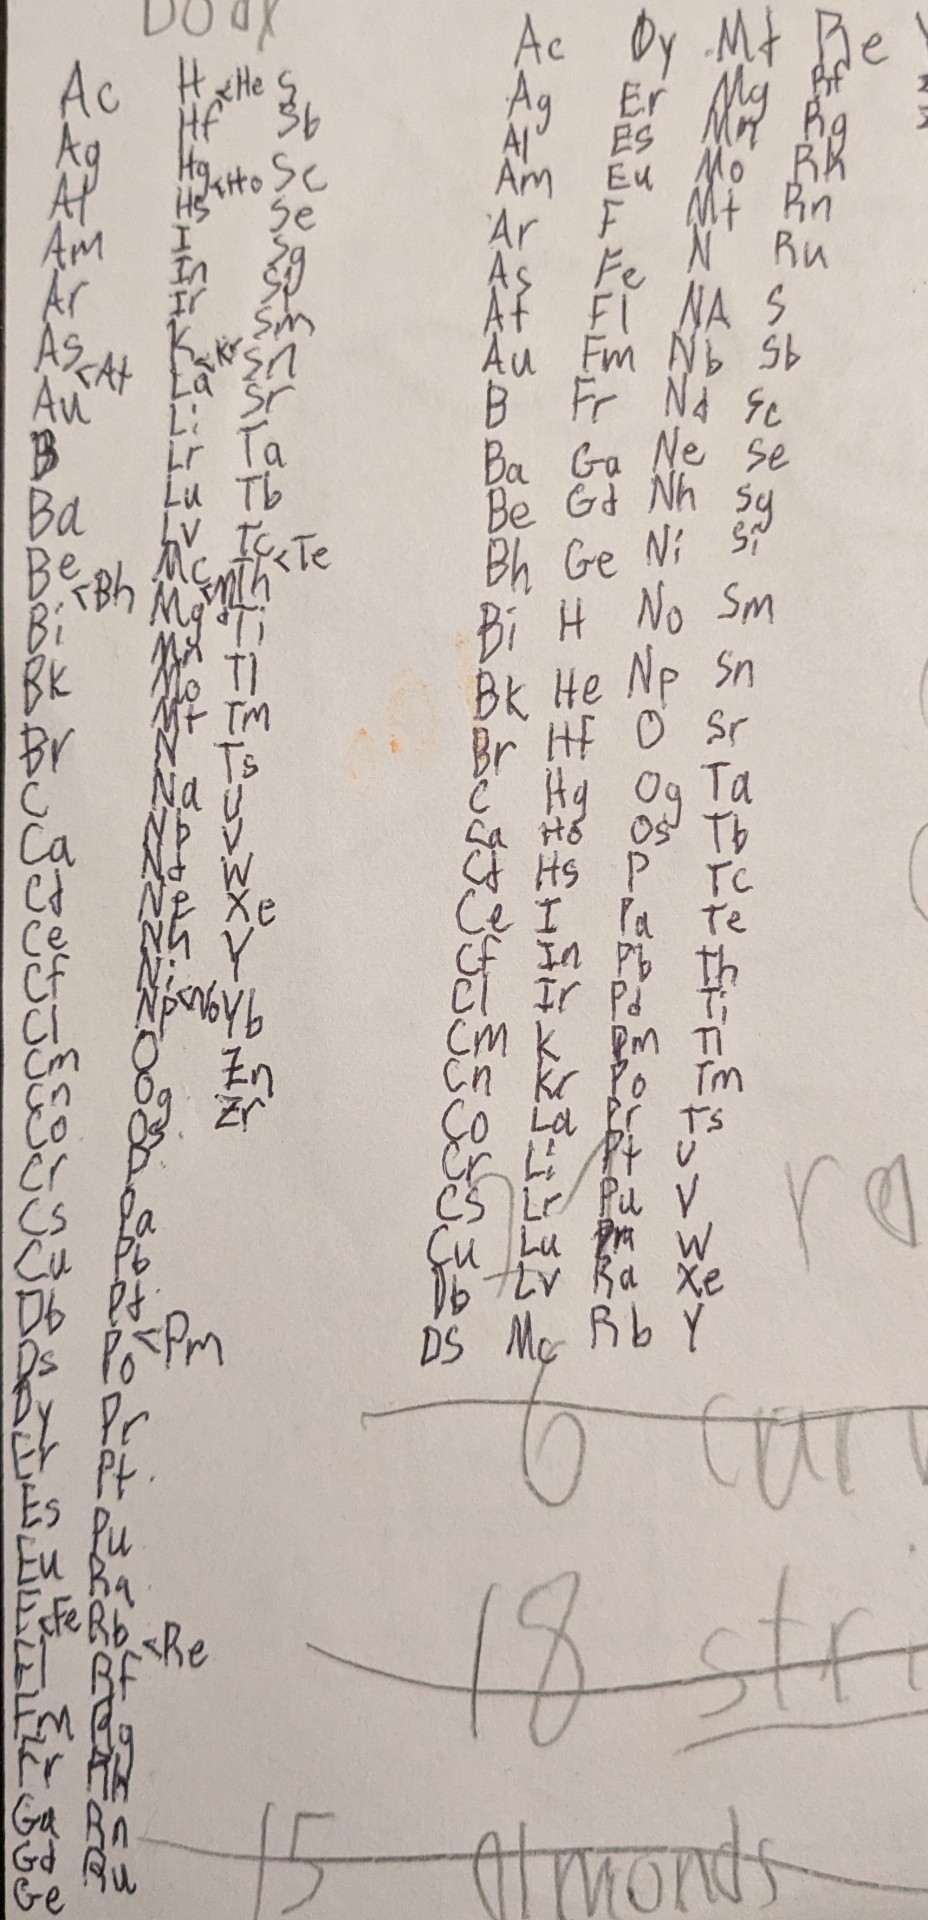 Ac
Ag
Al
Am
Ar
As <At
Au
B
Ba
Be <Bh
Bi
Bk
Br
C
Ca
Cd
Ce
Cf
Cl
Cm
Cn
Co
Cr
Cs
Cu
Db
Ds
Dy
Er
Es
Eu
F <Fe
Fl
Fm
Fr
Ga
Gd
Ge
H <He
Hf
Hg <Ho
Hs
I
In
Ir
K <Kr
La
Li
Lr
Lu
Lv
Mc <Md
Mg
Mn
Mo
Mt
N
Na
Nb
Nd
Ne
Nh
Ni
Np <No
O
Og
Os
P
Pa
Pb
Pd
Po <Pm
Pr
Pt
Pu
Ra
Rb <Re
Rf
Rg
Rh
Rn
Ru
S
Sb
Sc
Se
Sg
Si
Sm
Sn
Sr
Ta
Tb
Tc <Te
Th
Ti
Tl
Tm
Ts
U
V
W
Xe
Y
Yb
Zn
Zr
Ac
Ag
Al
Am
Ar
As
At
Au
B
Ba
Be
Bh
Bi
Bk
Br
C
Ca
Cd
Ce
Cf
Cl
Cm
Cn
Co
Cr
Cs
Cu
Db
DS
Dy
Er
Es
Eu
F
Fe
Fl
Fm
Fr
Ga
Gd
Ge
H
He
Hf
Hg
Ho
Hs
I
In
Ir
K
Kr
La
Li
Lr
Lu
Lv
Mc
Md
Mg
Mn
Mo
Mt
N
NA
Nb
Nd
Ne
Nh
Ni
No
Np
O
Og
Os
P
Pa
Pb
Pd
Pm
Po
Pr
Pt
Pu
Ra
Rb
Re
Rf
Rg
Rh
Rn
Ru
S
Sb
Sc
Se
Sg
Si
Sm
Sn
Sr
Ta
Tb
Tc
Te
Th
Ti
Tl
Tm
Ts
U
V
W
Xe
Y
6
18 stri
15 almonds